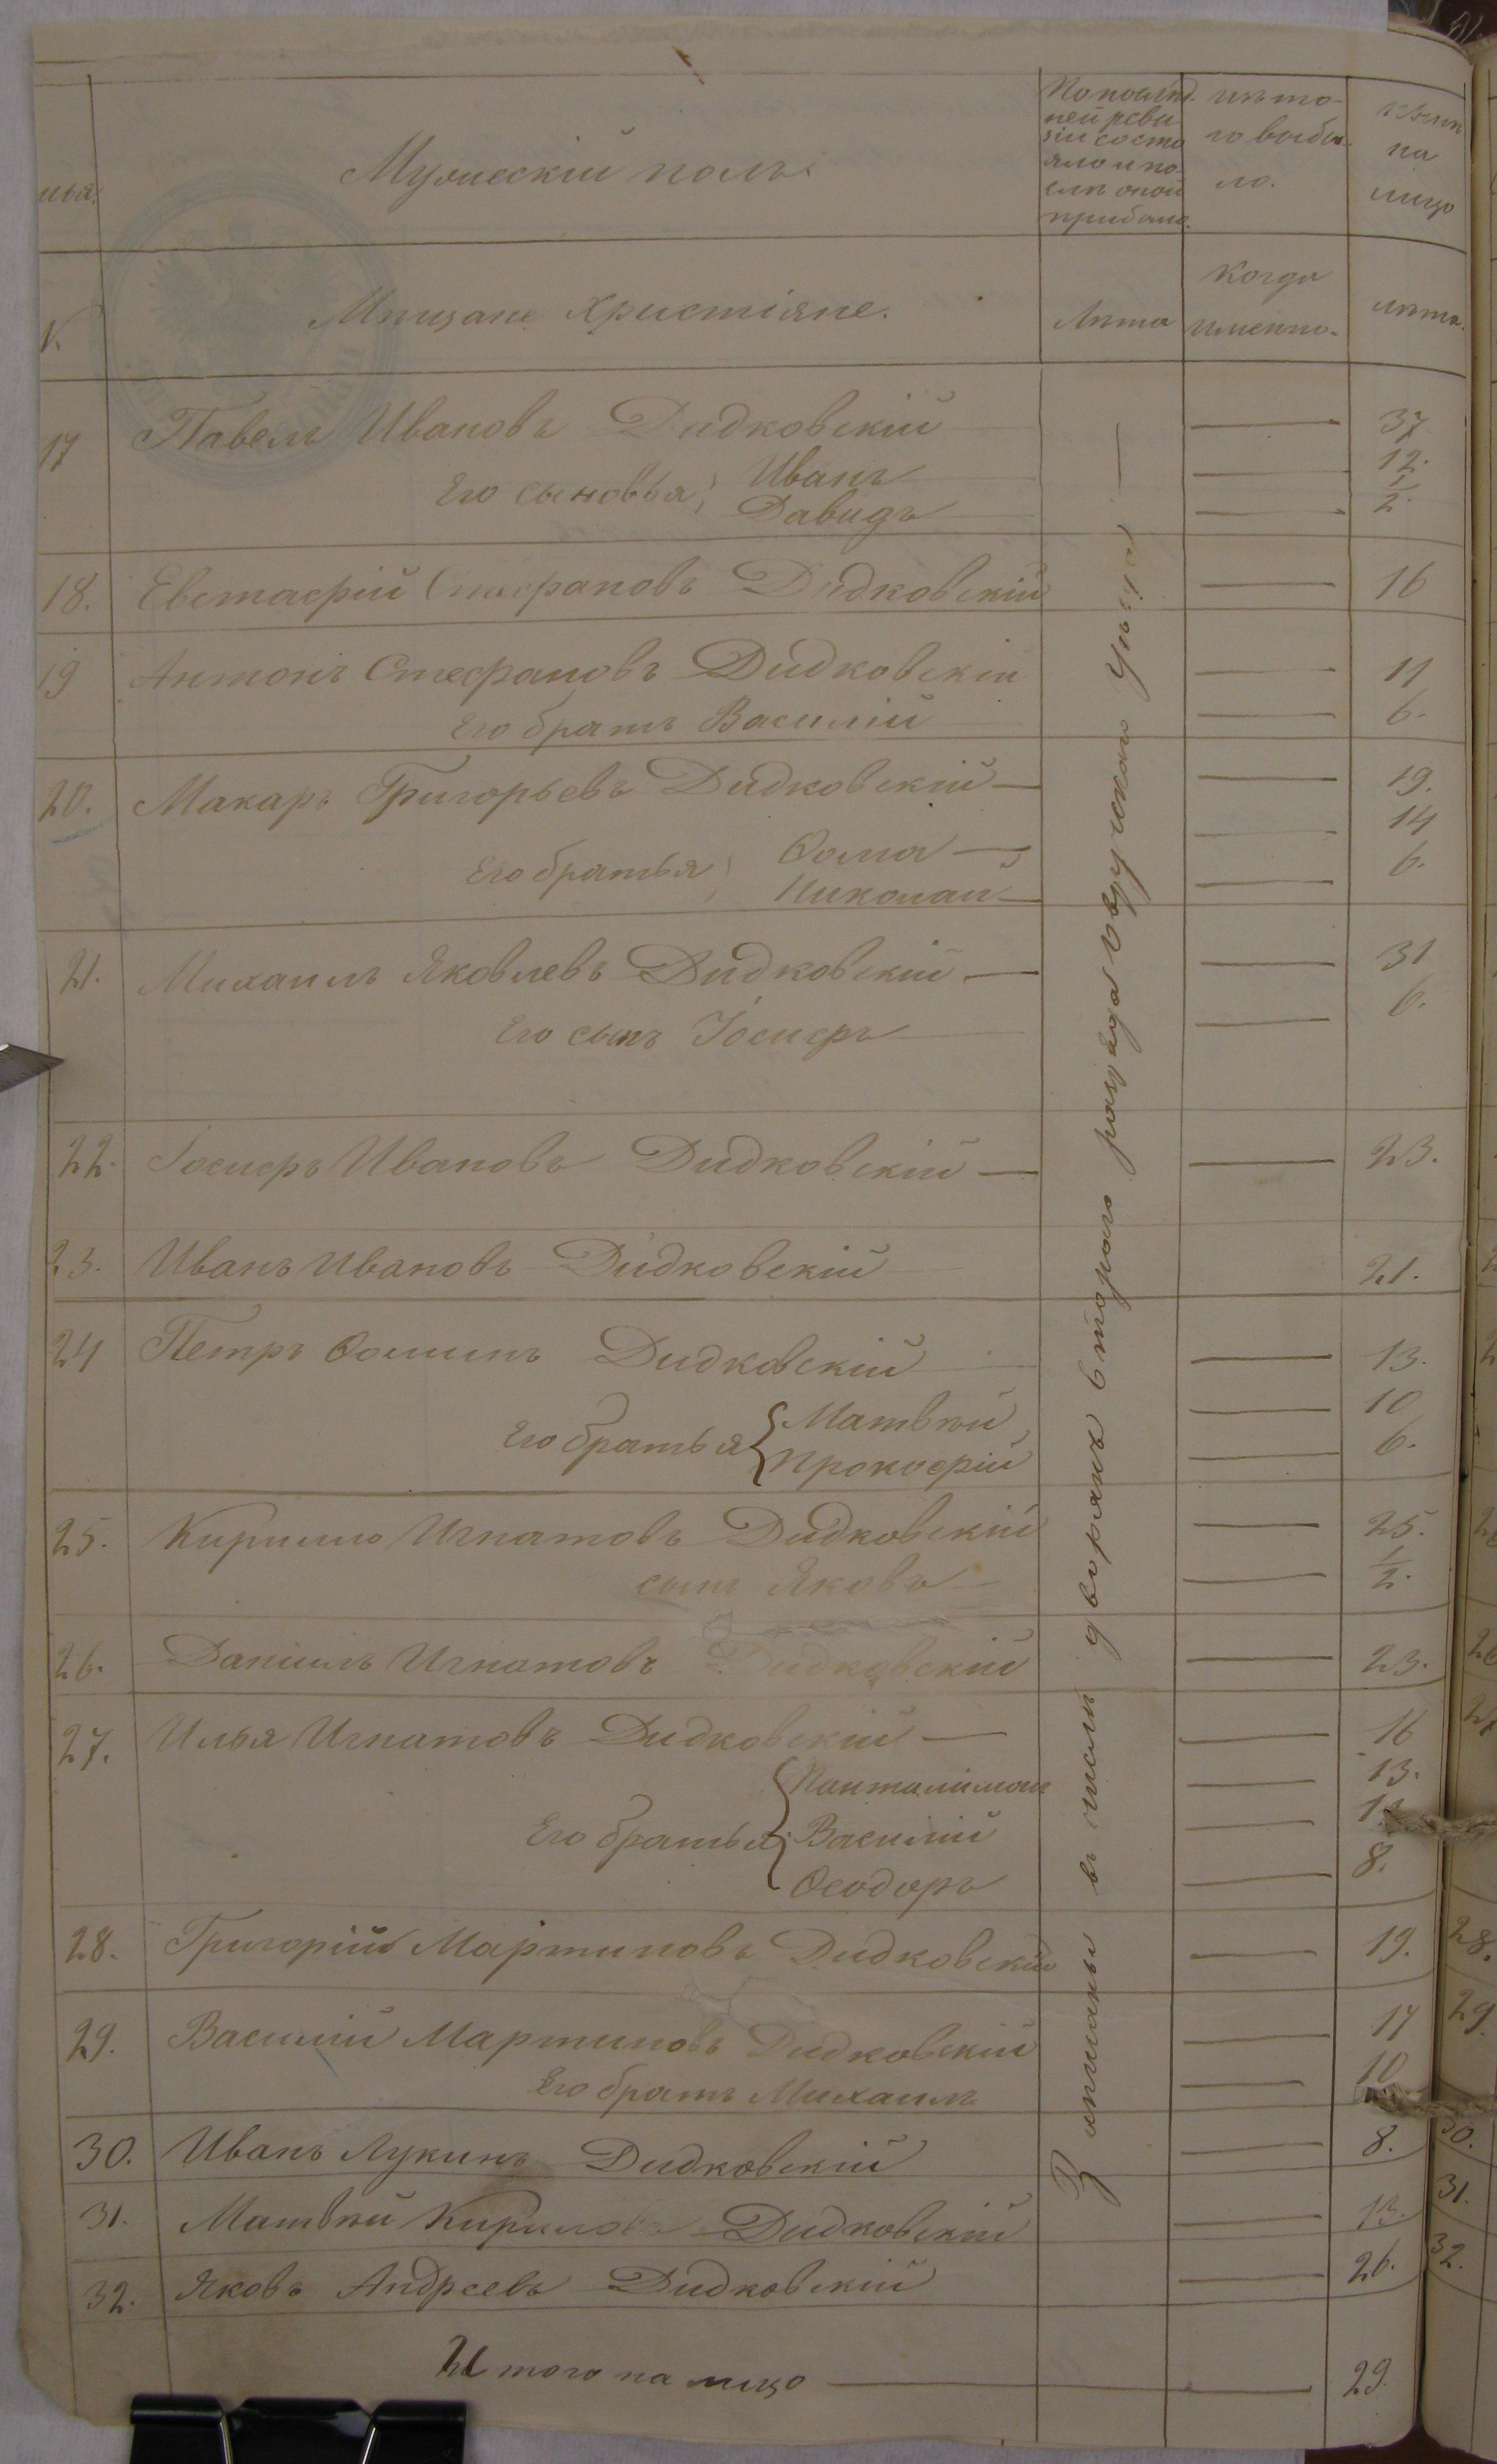 Мужескій полъ.
По послѣд-
ней реви-
зіи состо
яло и по-
слѣ оной
прибыло.
изъ то-
го выбы-
ло.
нынѣ
на
лицо
Мѣщане Христіяне.
Лѣта
Когда
именно.
лѣта.
17 Павелъ Ивановъ Дидковскій — 37
Его сыновья Иванъ — 12.
Давидъ — 1/2.
18. Евстафій Стефановъ Дидковскій — 16
19 Антонъ Стефановъ Дидковскій — 11
Его братъ Василій — 6.
20. Макаръ Григорьевъ Дидковскій — 19.
Его братья Ѳома — 14
Николай — 6.
21. Михаилъ Яковлевъ Дидковскій — 31
Его сынъ Іосифъ — 6.
22. Іосифъ Ивановъ Дидковскій — 23.
23. Иванъ Ивановъ Дидковскій 21.
24 Петръ Ѳоминъ Дидковскій — 13.
Его братья Матвѣй — 10
Прокофій — 6.
25. Кирилло Игнатовъ Дидковскій — 25.
сынъ Яковъ — 1/2.
26. Даніилъ Игнатовъ Дидковскій — 23.
27. Илья Игнатовъ Дидковскій — 16
Панталімон — 13.
Его братья: Василій —
Ѳеодоръ — 8.
28. Григорій Мартиновъ Дидковскій — 19.
29. Василій Мартиновъ Дидковскій — 17
Его братъ Михаилъ — 10
30. Иванъ Лукинъ Дидковскій — 8.
31. Матвѣй Кириловъ Дидковскій — 13.
32. Яковъ Андреевъ Дидковскій — 26.
Итого на лицо — 29.
Записаны въ число дворянъ втораго разряда Овручскаго Уѣзда —
28.
29.
30.
31.
32.